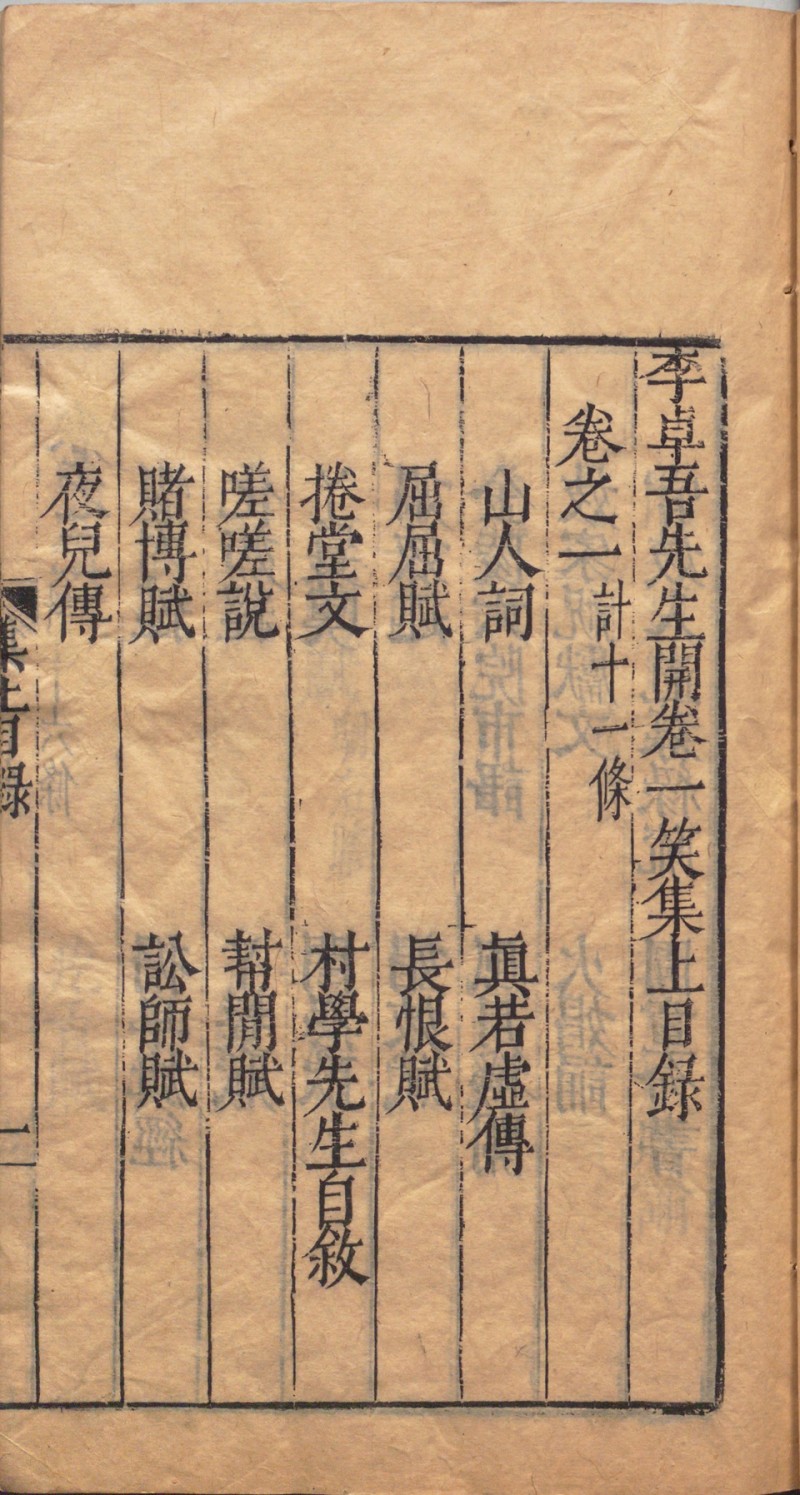 李卓吾先生開卷一笑集上目录
卷之一 計十一條
山人詞 眞若虛傳
屈屈賦 長恨賦
捲堂文 村學先生自敘
嗟嗟說 幇閒賦
賭博賦 訟師賦
夜兒傳
集上目録 一